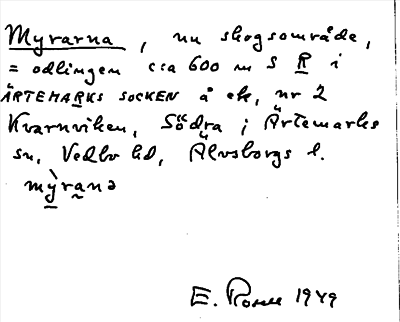 Myrarna, nu skogsområde,
= odlingen cca 600 m S R i
ÄRTEMARKS SOCKEN å ek, nr 2
Kvarnviken, Södra i Ärtemarks
sn, Vedbo hd, Älvsborgs l.
my̆rana
E. 1949